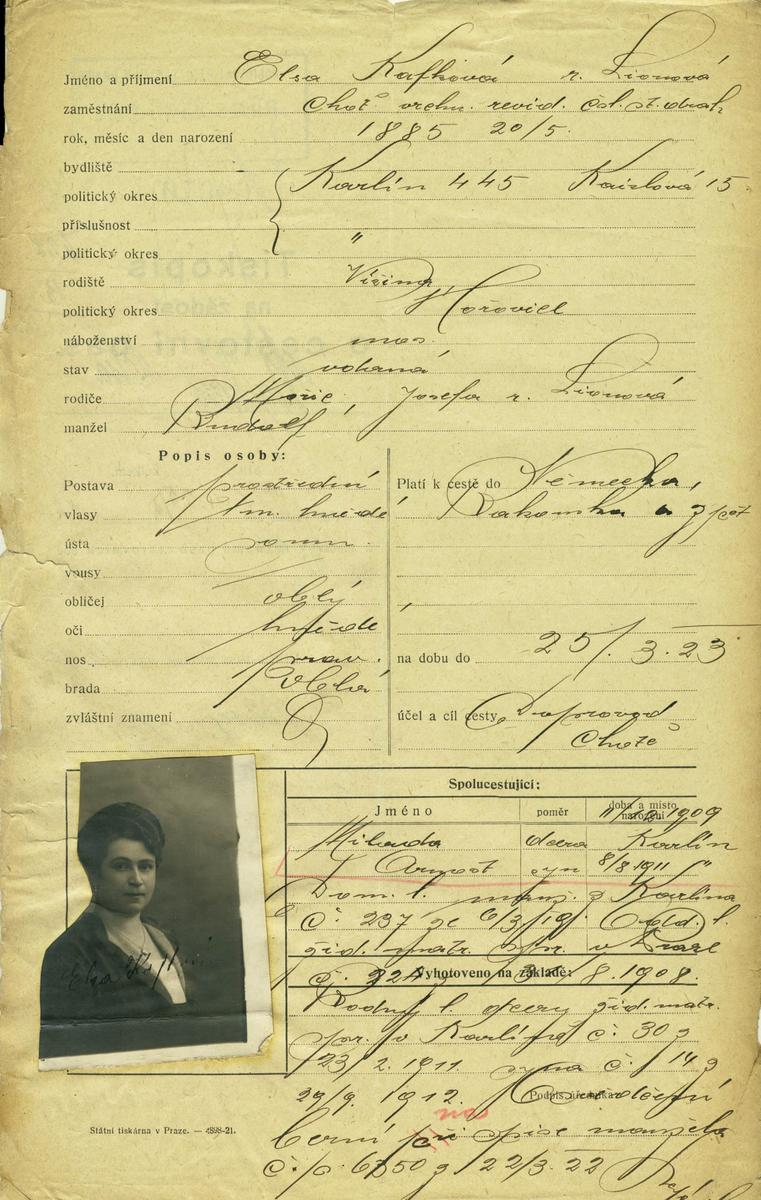 Jméno a příjmení Elsa Kafková r. Lionová
zaměstnání choť vrchn. revid. čsl. st. drah
rok, měsíc a den narození 1885 20/5.
bydliště
politický okres Karlín 445 Kaizlová 15
příslušnost
politický okres "
rodiště Vižina
politický okres Hořovice
náboženství mos.
stav vdaná
rodiče Mořic, Josefa r. Lionová
manžel Rudolf
Popis osoby:
Postava prostřední
vlasy tm. hnědé
ústa soum.
vousy
obličej oblý
oči hnědé
nos prav.
brada oblá
zvláštní znamení
Platí k cestě do Německa,
Rakouska a zpět
na dobu do 25/. 3. 23
účel a cíl cesty Doprovod
Chotě
Elsa
Spolucestující:
Jméno poměr doba a místo narození
1909
Milada dcera Karlín
Arnošt syn 8/8 1911 "
Dom. l. z Karlína
č. 237 ze Odd. l.
žid. matr. v Praze
Vyhotoveno na základě: 8. 1908.
Rodný l. dcery žid. matr.
v Karlíně č. 30 z
23/2. 1911. syna č. 14 z
29/9. 1912.
Podpis úředníka:
nas
berní při spise manžela
č. p. 6750 z 22/3. 22
Státní tiskárna v Praze. — 4898-21.